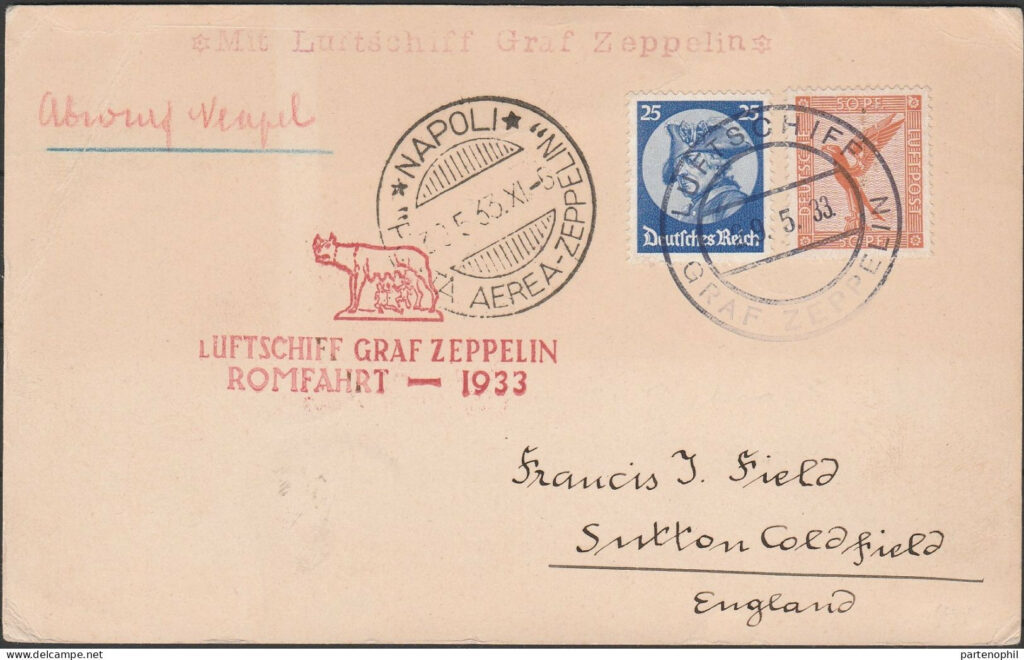 *Mit Luftschiff Graf Zeppelin*
Abwurf Neapel
* NAPOLI *
30.5.33.XI-6
AEREA-ZEPPELIN"
25 25
Deutsches Reich
50 PF
DEUTSCHE LUFTPOST
50 PF
LUFTSCHIFF
5. 33.
GRAF ZEPPELIN
LUFTSCHIFF GRAF ZEPPELIN
ROMFAHRT — 1933
Francis J. Field
Sutton Coldfield
England
www.delcampe.net
partenophil